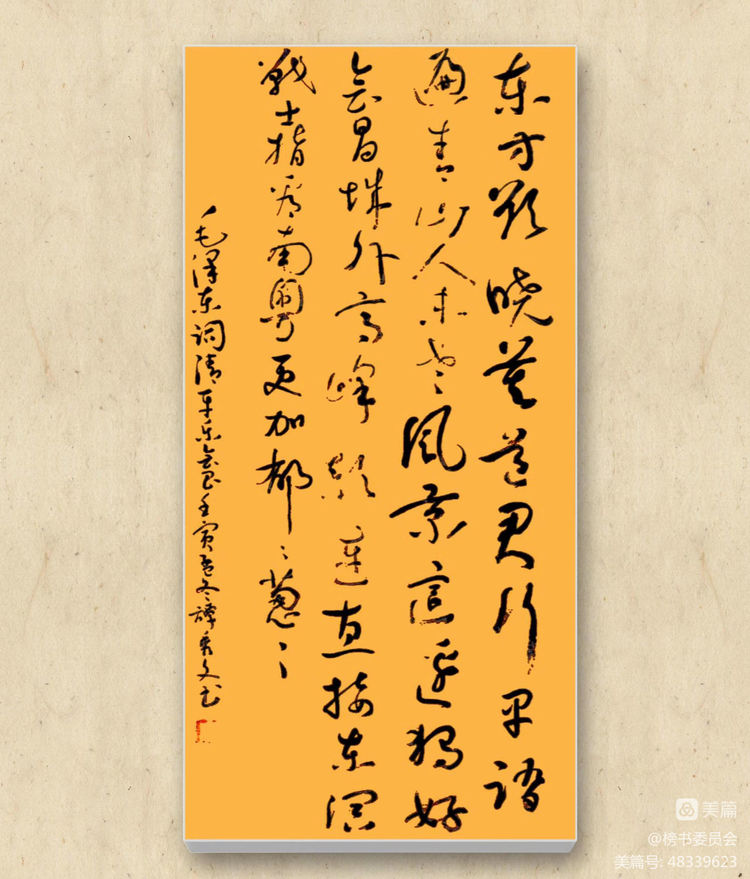 东方欲晓莫道君行早踏
遍青山人未老风景這边独好
会昌城外高峰颠連直接东溟
戰士指看南粤更加郁々葱々
毛泽东词清平乐会昌壬寅孟冬谭秀文书
美篇
@榜书委员会
美篇号: 48339623